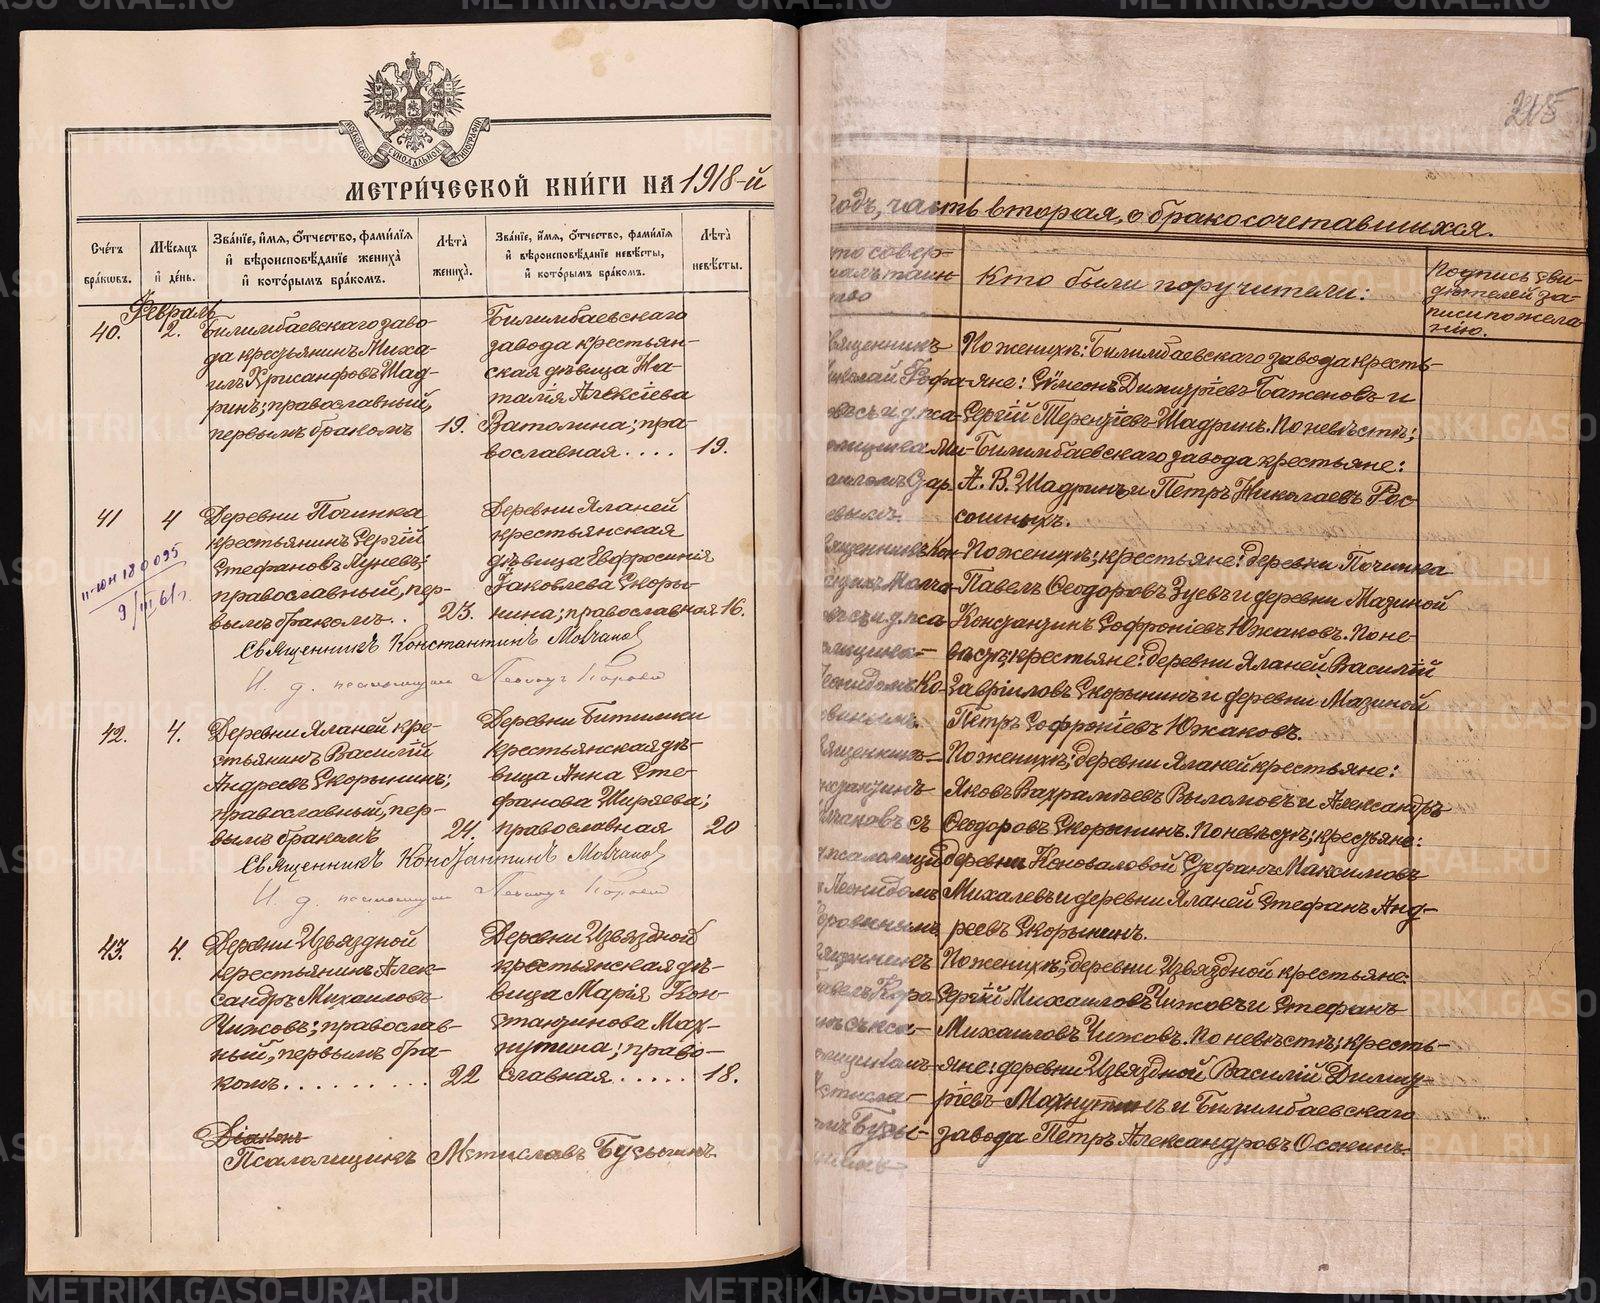 МОСКОВСКОЙ СѴНОДАЛЬНОЙ ТИПОГРАФІИ
МЕТРИ́ЧЕСКОЙ КНИ́ГИ НА 1918-й
Сче́тъ бра́кѡвъ.
Мѣ́сяцъ и҆ де́нь.
Зва́нїе, и҆́мя, ѻ҆́тчество, фами́лїя и҆ вѣроисповѣ́данїе жениха̀ и҆ кото́рымъ бра́комъ.
Лѣ́та жениха̀.
Зва́нїе, и҆́мя, ѻ҆́тчество, фами́лїя и҆ вѣроисповѣ́данїе невѣ́сты, и҆ кото́рымъ бра́комъ.
Лѣ́та невѣ́сты.
Февраль
40. 2. Билимбаевскаго заво-
да крестьянинъ Миха-
илъ Хрисанфовъ Шад-
ринъ; православный,
первымъ бракомъ 19.
Билимбаевскаго
завода крестьян-
ская дѣвица На-
талія Алексіева
Ватолина; пра-
вославная . . . . 19.
41 4 Деревни Починка
крестьянинъ Сергій
Стефановъ Луневъ;
православный, пер-
вымъ бракомъ . . 23.
Деревни Яланей
крестьянская
дѣвица Евфросинія
Іаковлева Скоры-
нина; православная 16.
II-юн 180095
9/III 61 г.
Священникъ Константинъ Молчановъ
И. д. псаломщика Леонидъ Коровин
42. 4. Деревни Яланей кре-
стьянинъ Василій
Андреевъ Скорынинъ;
православный, пер-
вымъ бракомъ 24.
Деревни Битимки
крестьянская дѣ-
вица Анна Сте-
фанова Ширяева;
православная 20
Священникъ Константинъ Молчановъ
И. д. псаломщика Леонидъ Коровин
43. 4. Деревни Извяздной
крестьянинъ Алек-
сандръ Михаиловъ
Чижовъ; православ-
ный, первымъ бра-
комъ . . . . . . . . . . 22
Деревни Извяздной
крестьянская дѣ-
вица Марія Кон-
стантинова Мах-
нутина; право-
славная . . . . . 18.
Діаконъ
Псаломщикъ Мстиславъ Бусыгинъ
215
годъ, часть вторая, о бракосочетавшихся.
кто совер-
шалъ таин-
ство
Кто были поручители:
Подпись сви-
дѣтелей за-
писи по жела-
нію.
Священникъ
Николай Рофа-
евъ съ и. д. пса-
ломщика Ми-
хаиломъ
По женихѣ: Билимбаевскаго завода кресть-
яне: Сѵмеонъ Димитріевъ Баженовъ и
Сергій Терентіевъ Шадринъ. По невѣстѣ;
Билимбаевскаго завода крестьяне:
А. В. Шадринъ и Петръ Николаевъ Рос-
сошныхъ.
Священникъ Кон-
Молча-
новъ съ и. д. пса-
ломщика
Леонидомъ Ко-
ровинымъ.
По женихѣ; крестьяне: деревни Починка
Павелъ Ѳеодоровъ Зуевъ и деревни Мазиной
Константинъ Софроніевъ Южаковъ. По не-
вѣстѣ; крестьяне: деревни Яланей Василій
Гавріиловъ Скорынинъ и деревни Мазиной
Петръ Софроніевъ Южаковъ.
Священникъ
Константинъ
Молчановъ съ
псаломщи
Леонидомъ
Коровинымъ
По женихѣ; деревни Яланей крестьяне:
Яковъ Вахрамѣевъ Выломовъ и Александръ
Ѳеодоровъ Скорынинъ. По невѣстѣ; крестьяне:
деревни Коноваловой Стефанъ Максимовъ
Михалевъ и деревни Яланей Стефанъ Анд-
реевъ Скорынинъ.
Священникъ
Павелъ Коро-
съ пса-
ломщикомъ
Мстисла-
вомъ Бусы-
гинымъ
По женихѣ; деревни Извяздной крестьяне:
Сергій Михаиловъ Чижовъ и Стефанъ
Михаиловъ Чижовъ. По невѣстѣ; кресть-
яне: деревни Извяздной Василій Димит-
ріевъ Махнутинъ и Билимбаевскаго
завода Петръ Александровъ Осокинъ.
METRIKI.GASO-URAL.RU